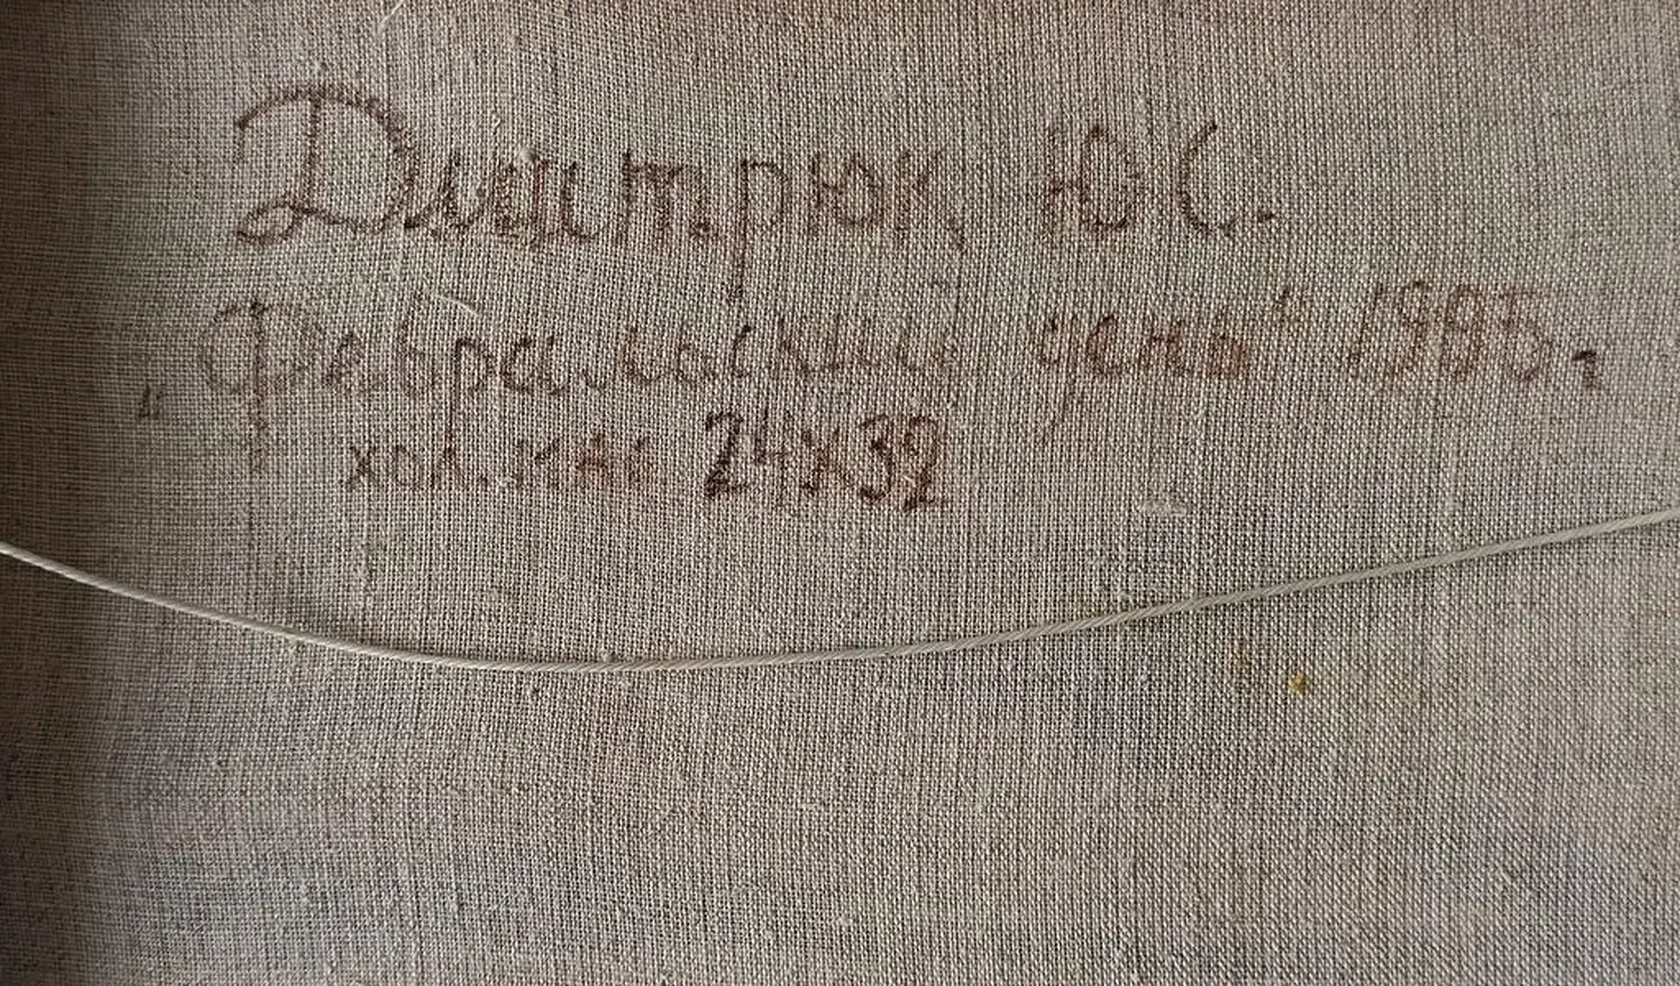 Дмитрюк Ю С.
„Февральский день" 1985 г
хол. мас 24х32